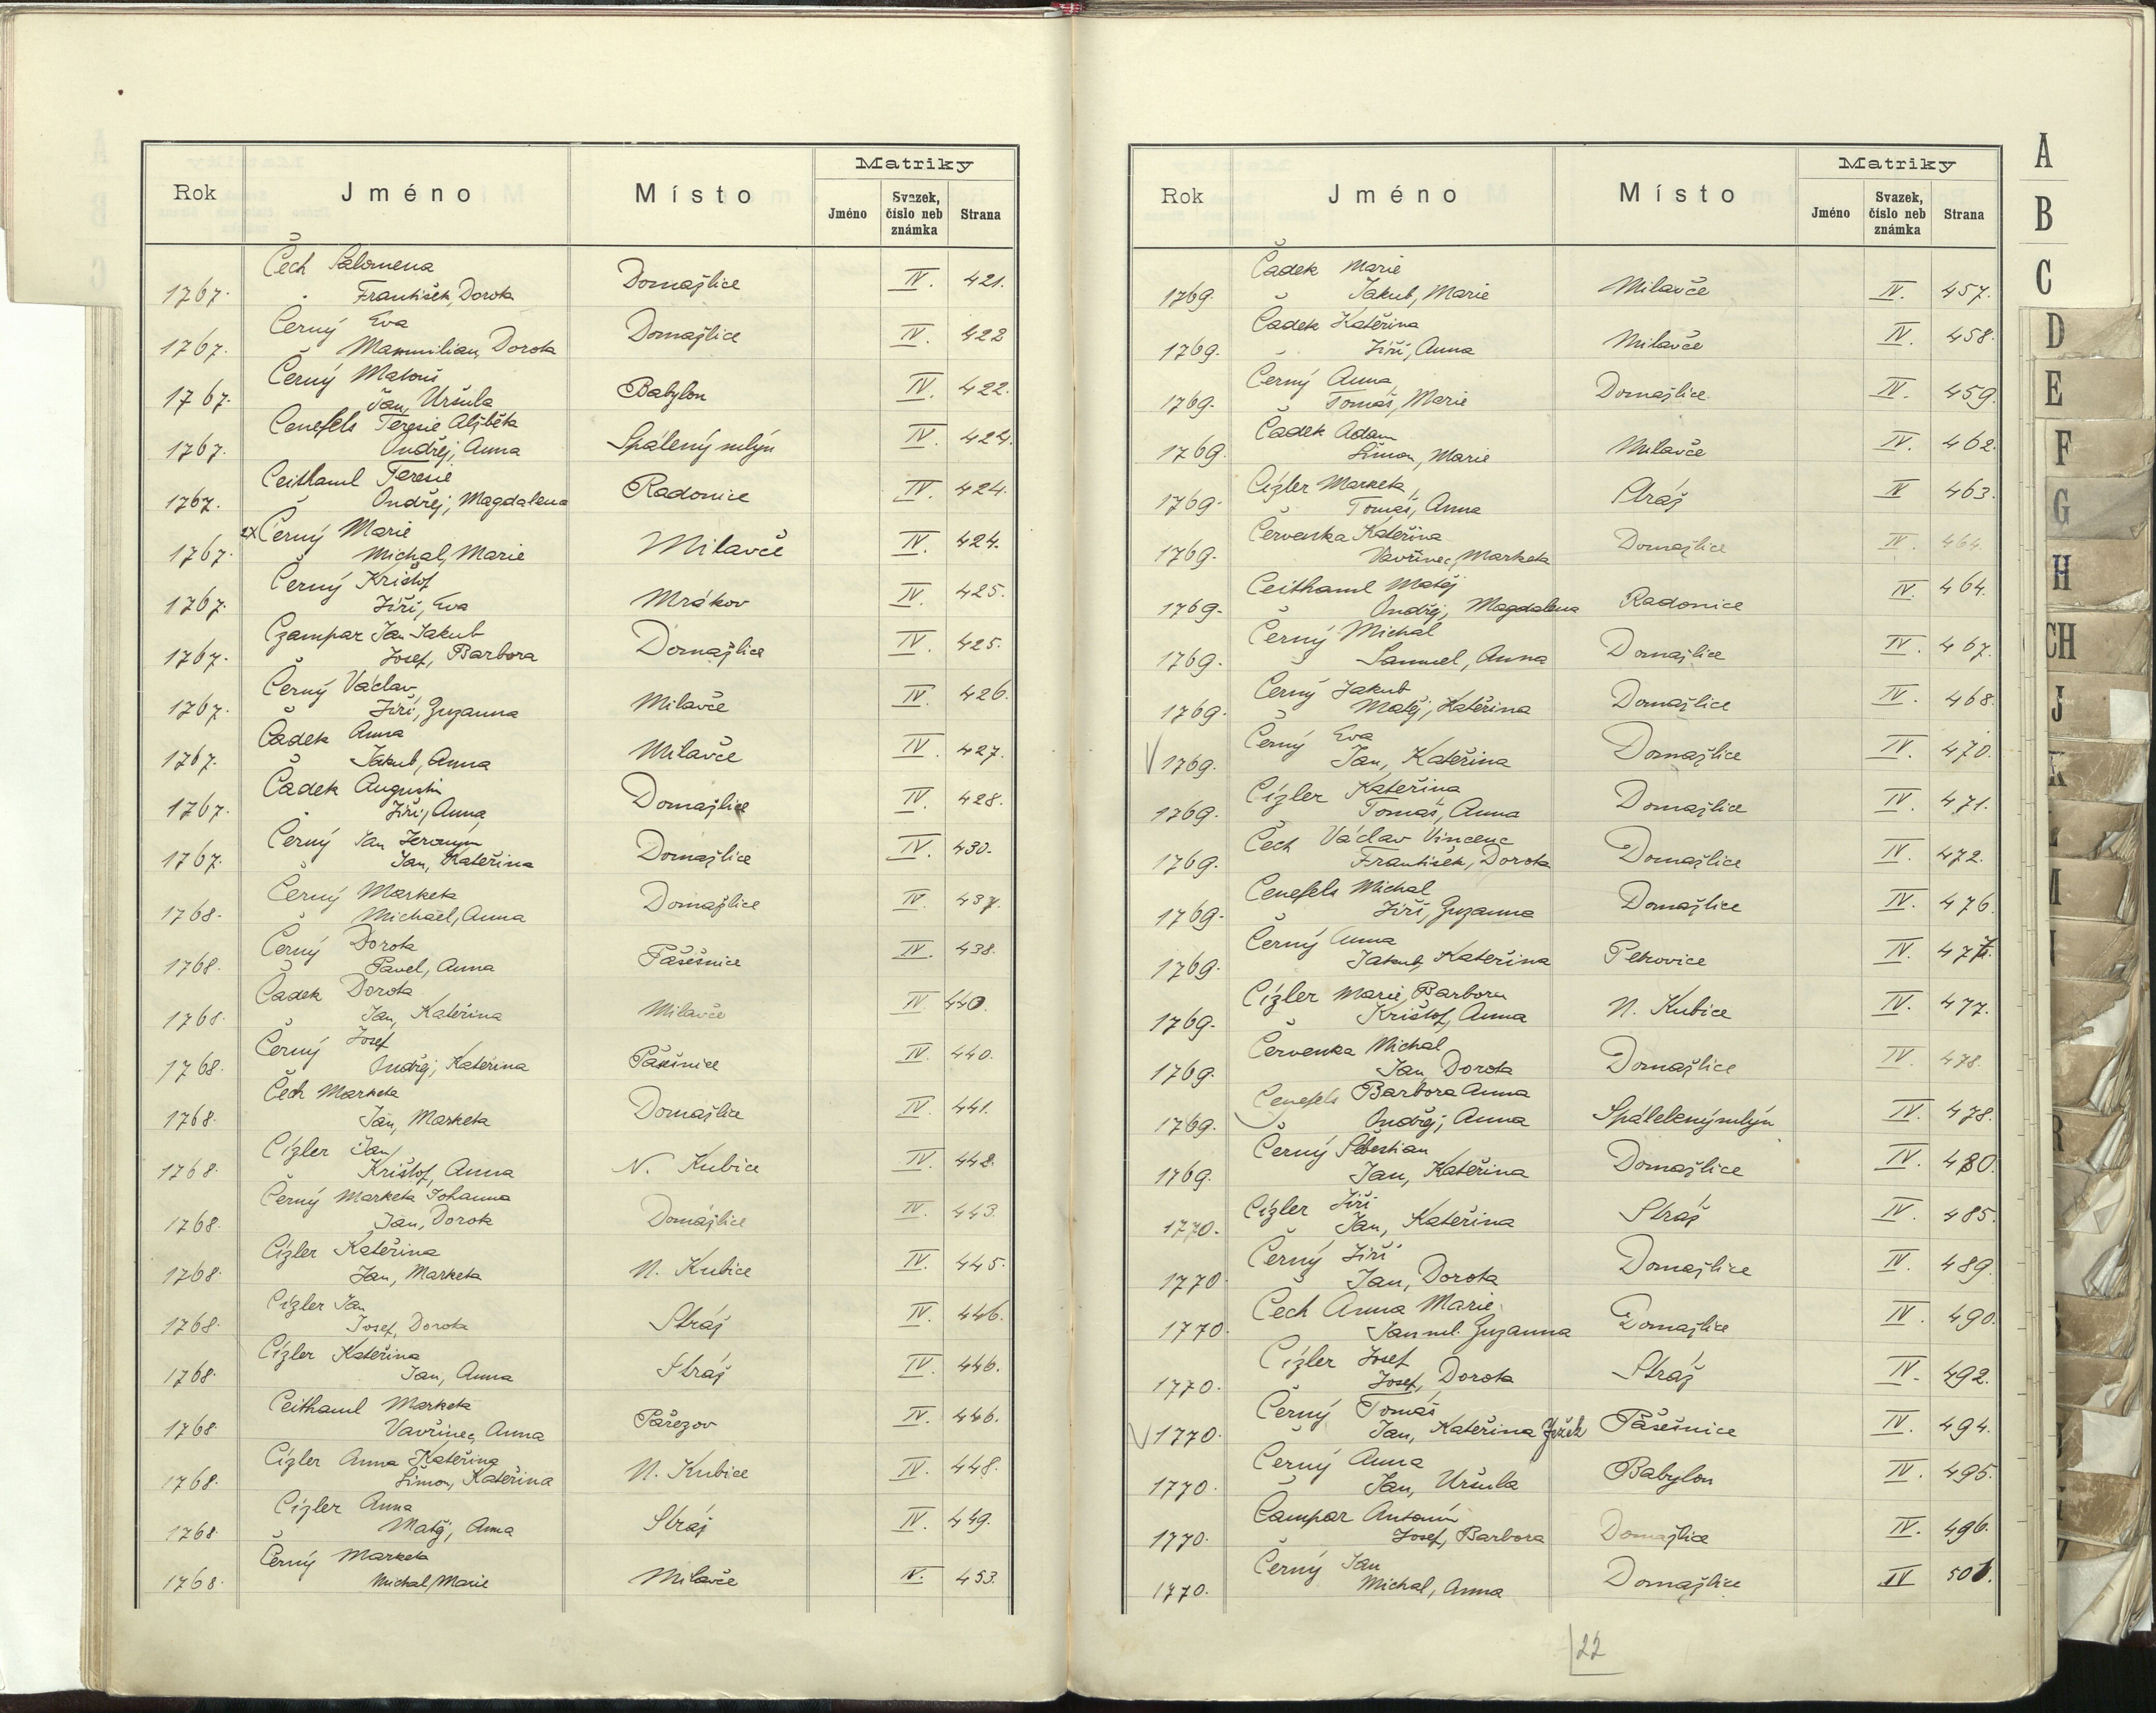 Matriky
Rok Jméno Místo Jméno Svazek, číslo neb známka Strana
Čech Salomena
1767. František, Dorota Domažlice IV. 421.
Černý Eva
1767. Maxmilian, Dorota Domažlice IV. 422
Černý Matouš
1767. Jan, Uršula Babylon IV. 422.
Cenefels Teresie Alžběta
1767. Ondřej, Anna Spálený mlýn IV. 424.
Ceithaml Teresie
1767. Ondřej, Magdalena Radonice IV. 424.
2x Černý Marie
1767. Michal, Marie Milavče IV. 424.
Černý Krištof
1767. Jiří, Eva Mrákov IV. 425.
Czampar Jan Jakub
1767. Josef, Barbora Domažlice IV. 425.
Černý Václav
1767. Jiří, Zuzanna Milavče IV. 426.
Čadek Anna
1767. Jakub, Anna Milavče IV. 427.
Čadek Augustin
1767. Jiří, Anna Domažlice IV. 428.
Černý Jan Jeronym
1767. Jan, Kateřina Domažlice IV. 430.
Černý Marketa
1768. Michael, Anna Domažlice IV. 437.
Černý Dorota
1768. Pavel, Anna Pašešnice IV. 438.
Čadek Dorota
1768. Jan, Kateřina Milavče IV. 440.
Černý Josef
1768. Ondřej, Kateřina Pašešnice IV. 440.
Čech Marketa
1768. Jan, Marketa Domažlice IV. 441.
Cízler Jan
1768. Krištof, Anna N. Kubice IV. 442.
Černý Marketa Johanna
1768. Jan, Dorota Domažlice IV. 443.
Cízler Kateřina
1768. Jan, Marketa N. Kubice IV. 445.
Cízler Jan
1768. Josef, Dorota Stráž IV. 446.
Cízler Kateřina
1768. Jan, Anna Stráž IV. 446.
Ceithaml Marketa
1768. Vavřinec, Anna Pařezov IV. 446.
Cízler Anna Kateřina
1768. Šimon, Kateřina N. Kubice IV. 448.
Cízler Anna
1768. Matěj, Anna Stráž IV. 449.
Černý Marketa
1768. Michal, Marie Milavče IV. 453.
Matriky
Rok Jméno Místo Jméno Svazek, číslo neb známka Strana
Čadek Marie
1769. Jakub, Marie Milavče IV. 457.
Čadek Kateřina
1769. Jiří, Anna Milavče IV. 458.
Černý Anna
1769. Tomáš, Marie Domažlice IV. 459.
Čadek Adam
1769. Šimon, Marie Milavče IV. 462.
Cízler Marketa
1769. Tomáš, Anna Stráž IV 463.
Červenka Kateřina
1769. Vavřinec, Marketa Domažlice IV. 464.
Ceithaml Matěj
1769. Ondřej, Magdalena Radonice IV. 464.
Černý Michal
1769. Samuel, Anna Domažlice IV. 467.
Černý Jakub
1769. Matěj, Kateřina Domažlice IV. 468.
Černý Eva
V 1769. Jan, Kateřina Domažlice IV. 470.
Cízler Kateřina
1769. Tomáš, Anna Domažlice IV. 471.
Čech Václav Vincenc
1769. František, Dorota Domažlice IV. 472.
Cenefels Michal
1769. Jiří, Zuzanna Domažlice IV. 476.
Černý Anna
1769. Jakub, Kateřina Petrovice IV. 477.
Cízler Marie, Barbora
1769. Krištof, Anna N. Kubice IV. 477.
Červenka Michal
1769. Jan, Dorota Domažlice IV. 478.
Cenefels Barbora Anna
1769. Ondřej, Anna Spálelený mlýn IV. 478.
Černý Šebestian
1769. Jan, Kateřina Domažlice IV. 480.
Cízler Jiří
1770. Jan, Kateřina Stráž IV. 485.
Černý Jiří
1770 Jan, Dorota Domažlice IV. 489.
Čech Anna Marie
1770. Jan ml. Zuzanna Domažlice IV. 490.
Cízler Josef
1770. Josef, Dorota Stráž IV. 492.
Černý Tomáš
V 1770. Jan, Kateřina Ježek Pašešnice IV. 494.
Černý Anna
1770. Jan, Uršula Babylon IV. 495.
Čampar Antonín
1770. Josef, Barbora Domažlice IV. 496.
Černý Jan
1770. Michal, Anna Domažlice IV 501.
22
A
B
C
D
E
F
G
H
CH
J
K
L
M
N
R